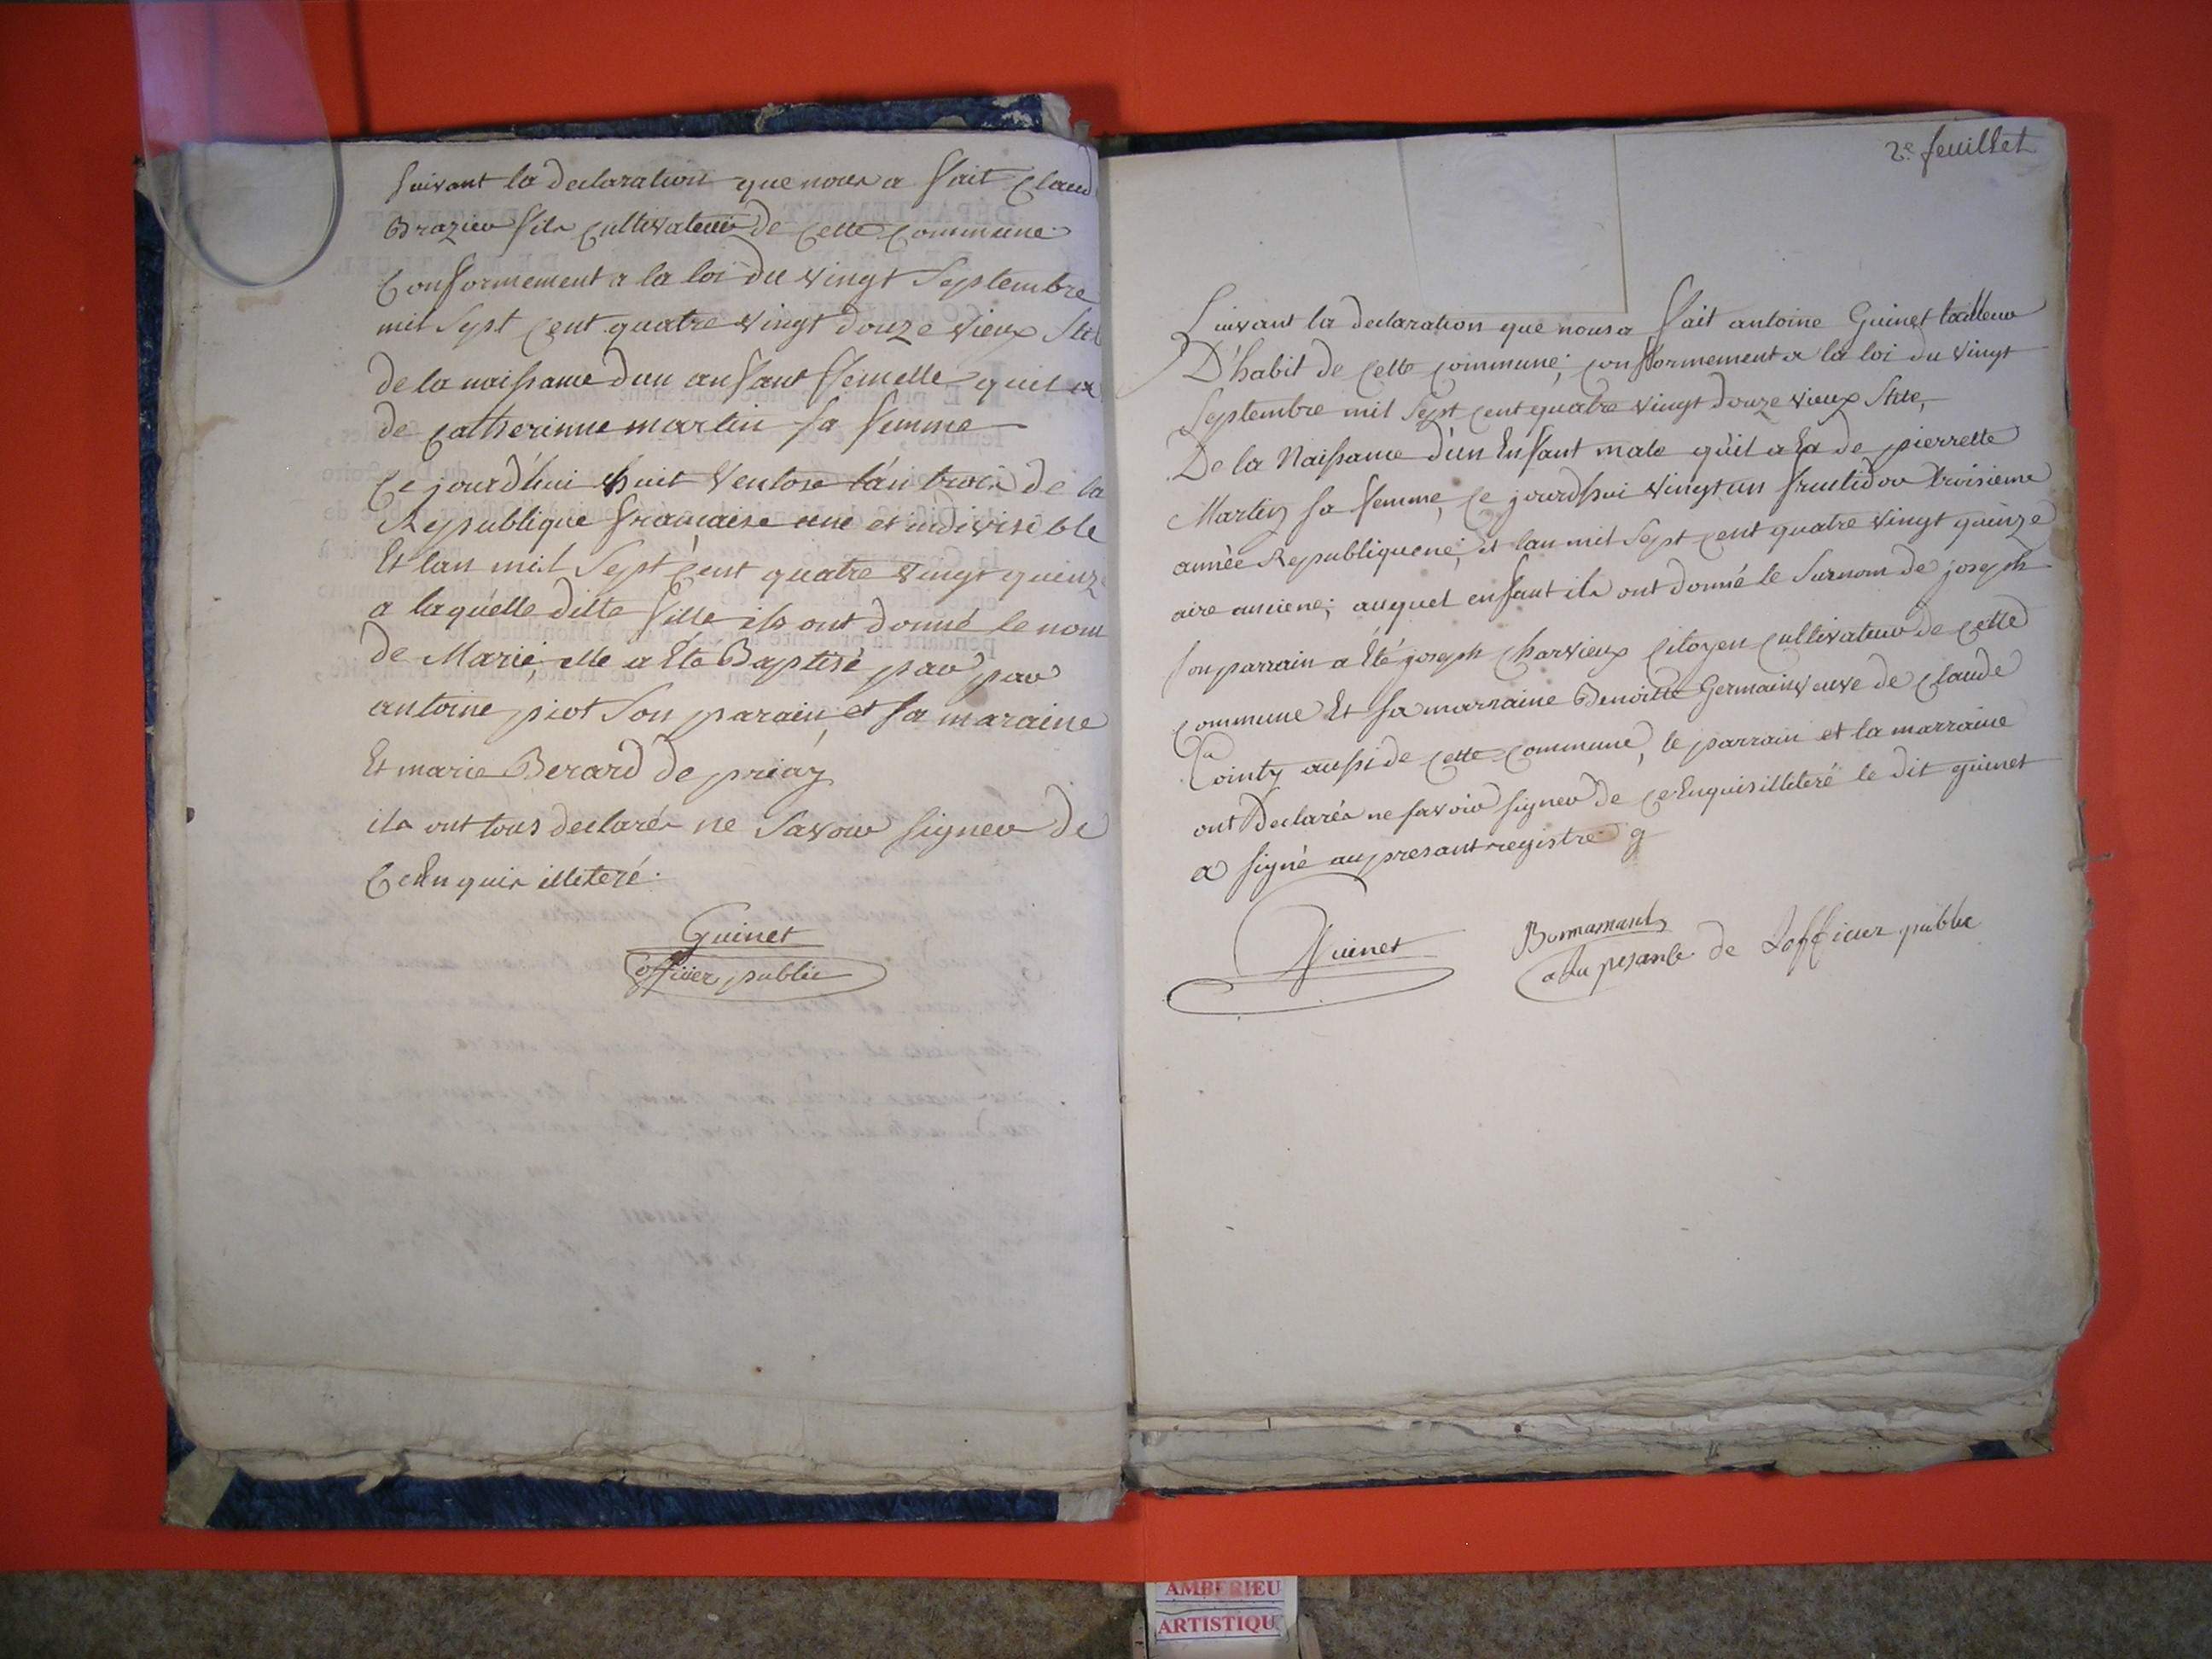 Suivant la declaration que nous a fait Claud
Brazier fils cultivateur de cette commune
Conformement a la loi du vingt Septembre
mil Sept Cent quatre vingt douze vieux Stil
de la naissance dun anfant femelle quil a
de Catherinne martin sa femme
Ce jourd'hui huit Ventose l'an trois de la
Republique francaise une et indivisible
Et lan mil Sept Cent quatre vingt quinz
a laquelle ditte fille ils ont donné le nom
de Marie, elle a Eté Baptisé par par
antoine piot Son parain, et sa maraine
Et marie Berard de priay
ils ont tous declarés ne Savoir signer de
Ce Enquis illeteré.
Guinet
officier public
2e feuillet
Suivant la declaration que nous a fait antoine Guinet tailleur
D'habit de cette commune; conformement a la loi du vingt
Septembre mil Sept Cent quatre vingt douze vieux Stile,
De la Naissance d'un Enfant male qu'il a Eu de pierrette
Martin sa femme, Ce jourdhui vingt un fructidor troisieme
année Republiquene; et lan mil Sept Cent quatre vingt quinze
aire anciene; auquel enfant ils ont donné le Surnom de joseph
son parrain a Eté joseph Charvieux Citoyen cultivateur de Cette
Commune Et sa marraine Benoitte Germain veuve de Claude
Cointy aussi de Cette Commune, le parrain et la marraine
ont Declarés ne savoir signer de Ce Enquis illiteré le dit guinet
a signé au presant registre g
Guinet
de Lofficier public
AMBERIEU
ARTISTIQU